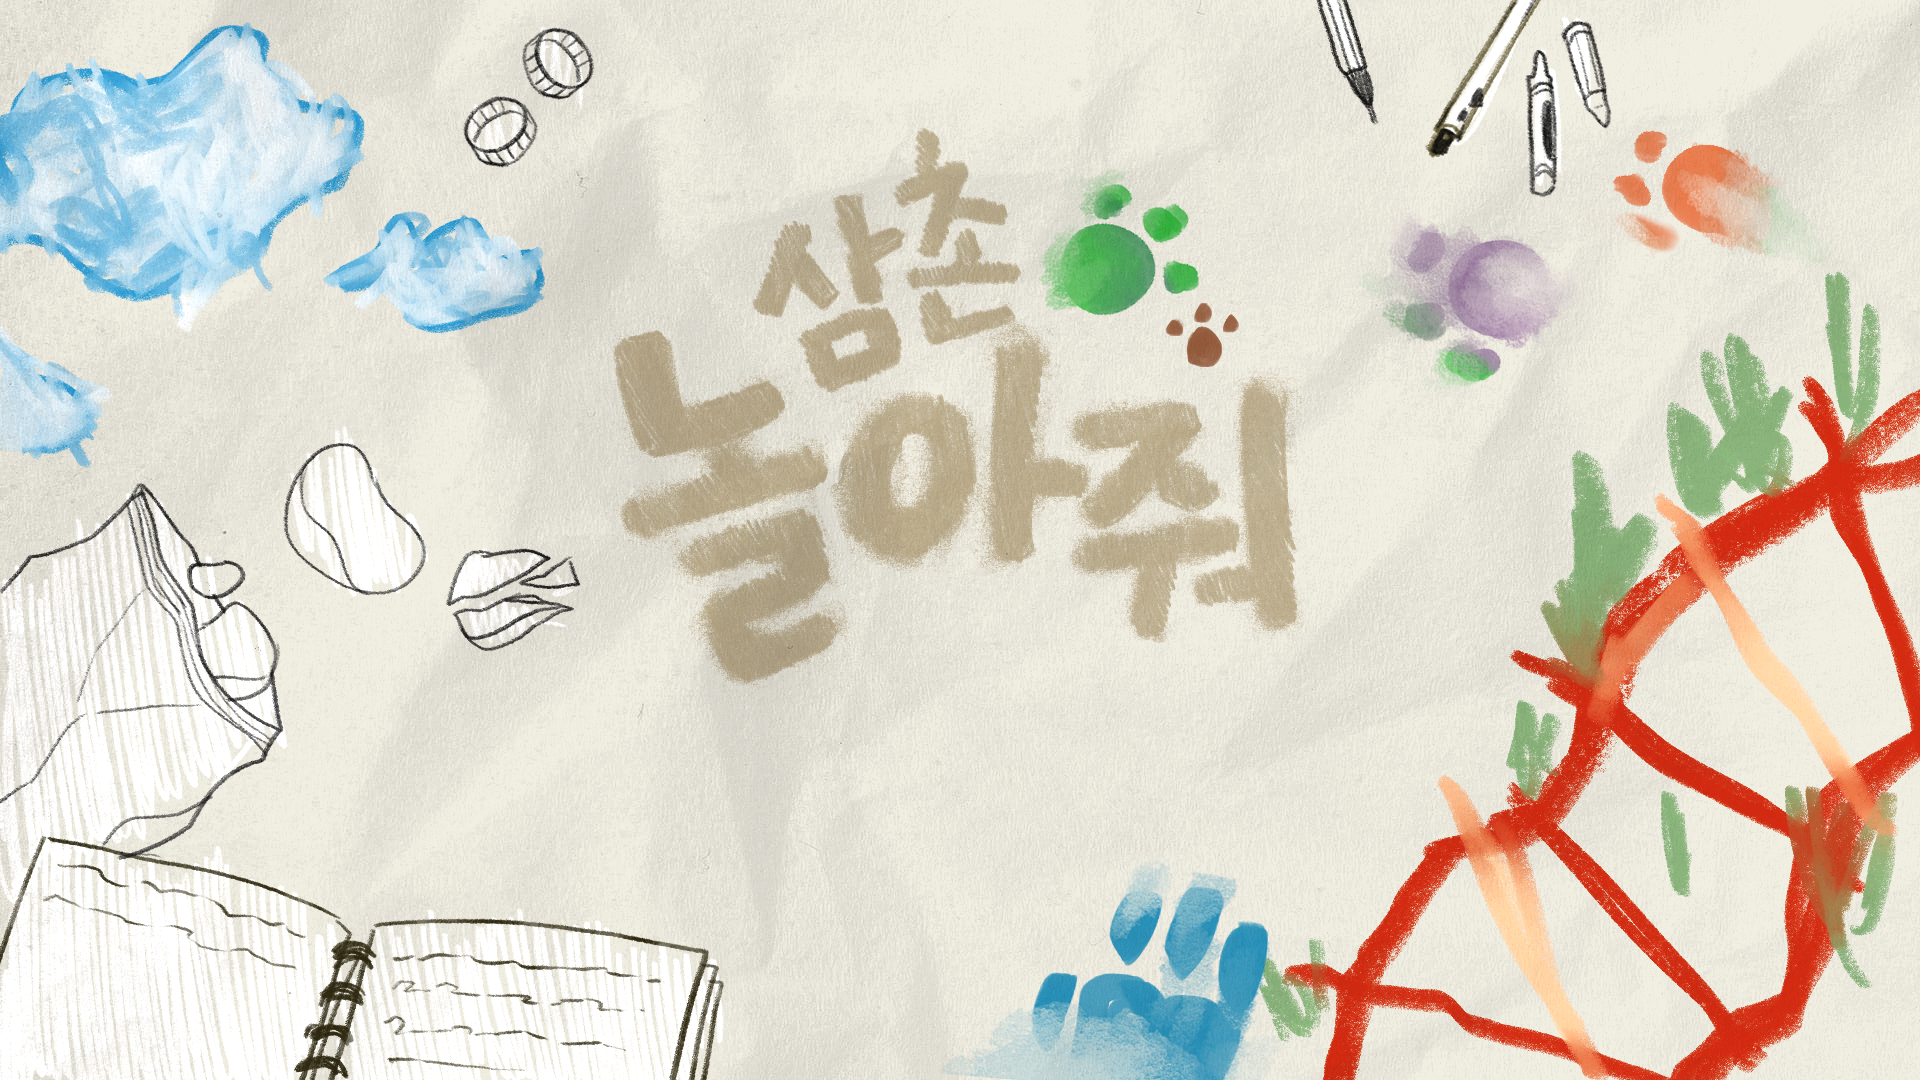 삼촌
놀아줘